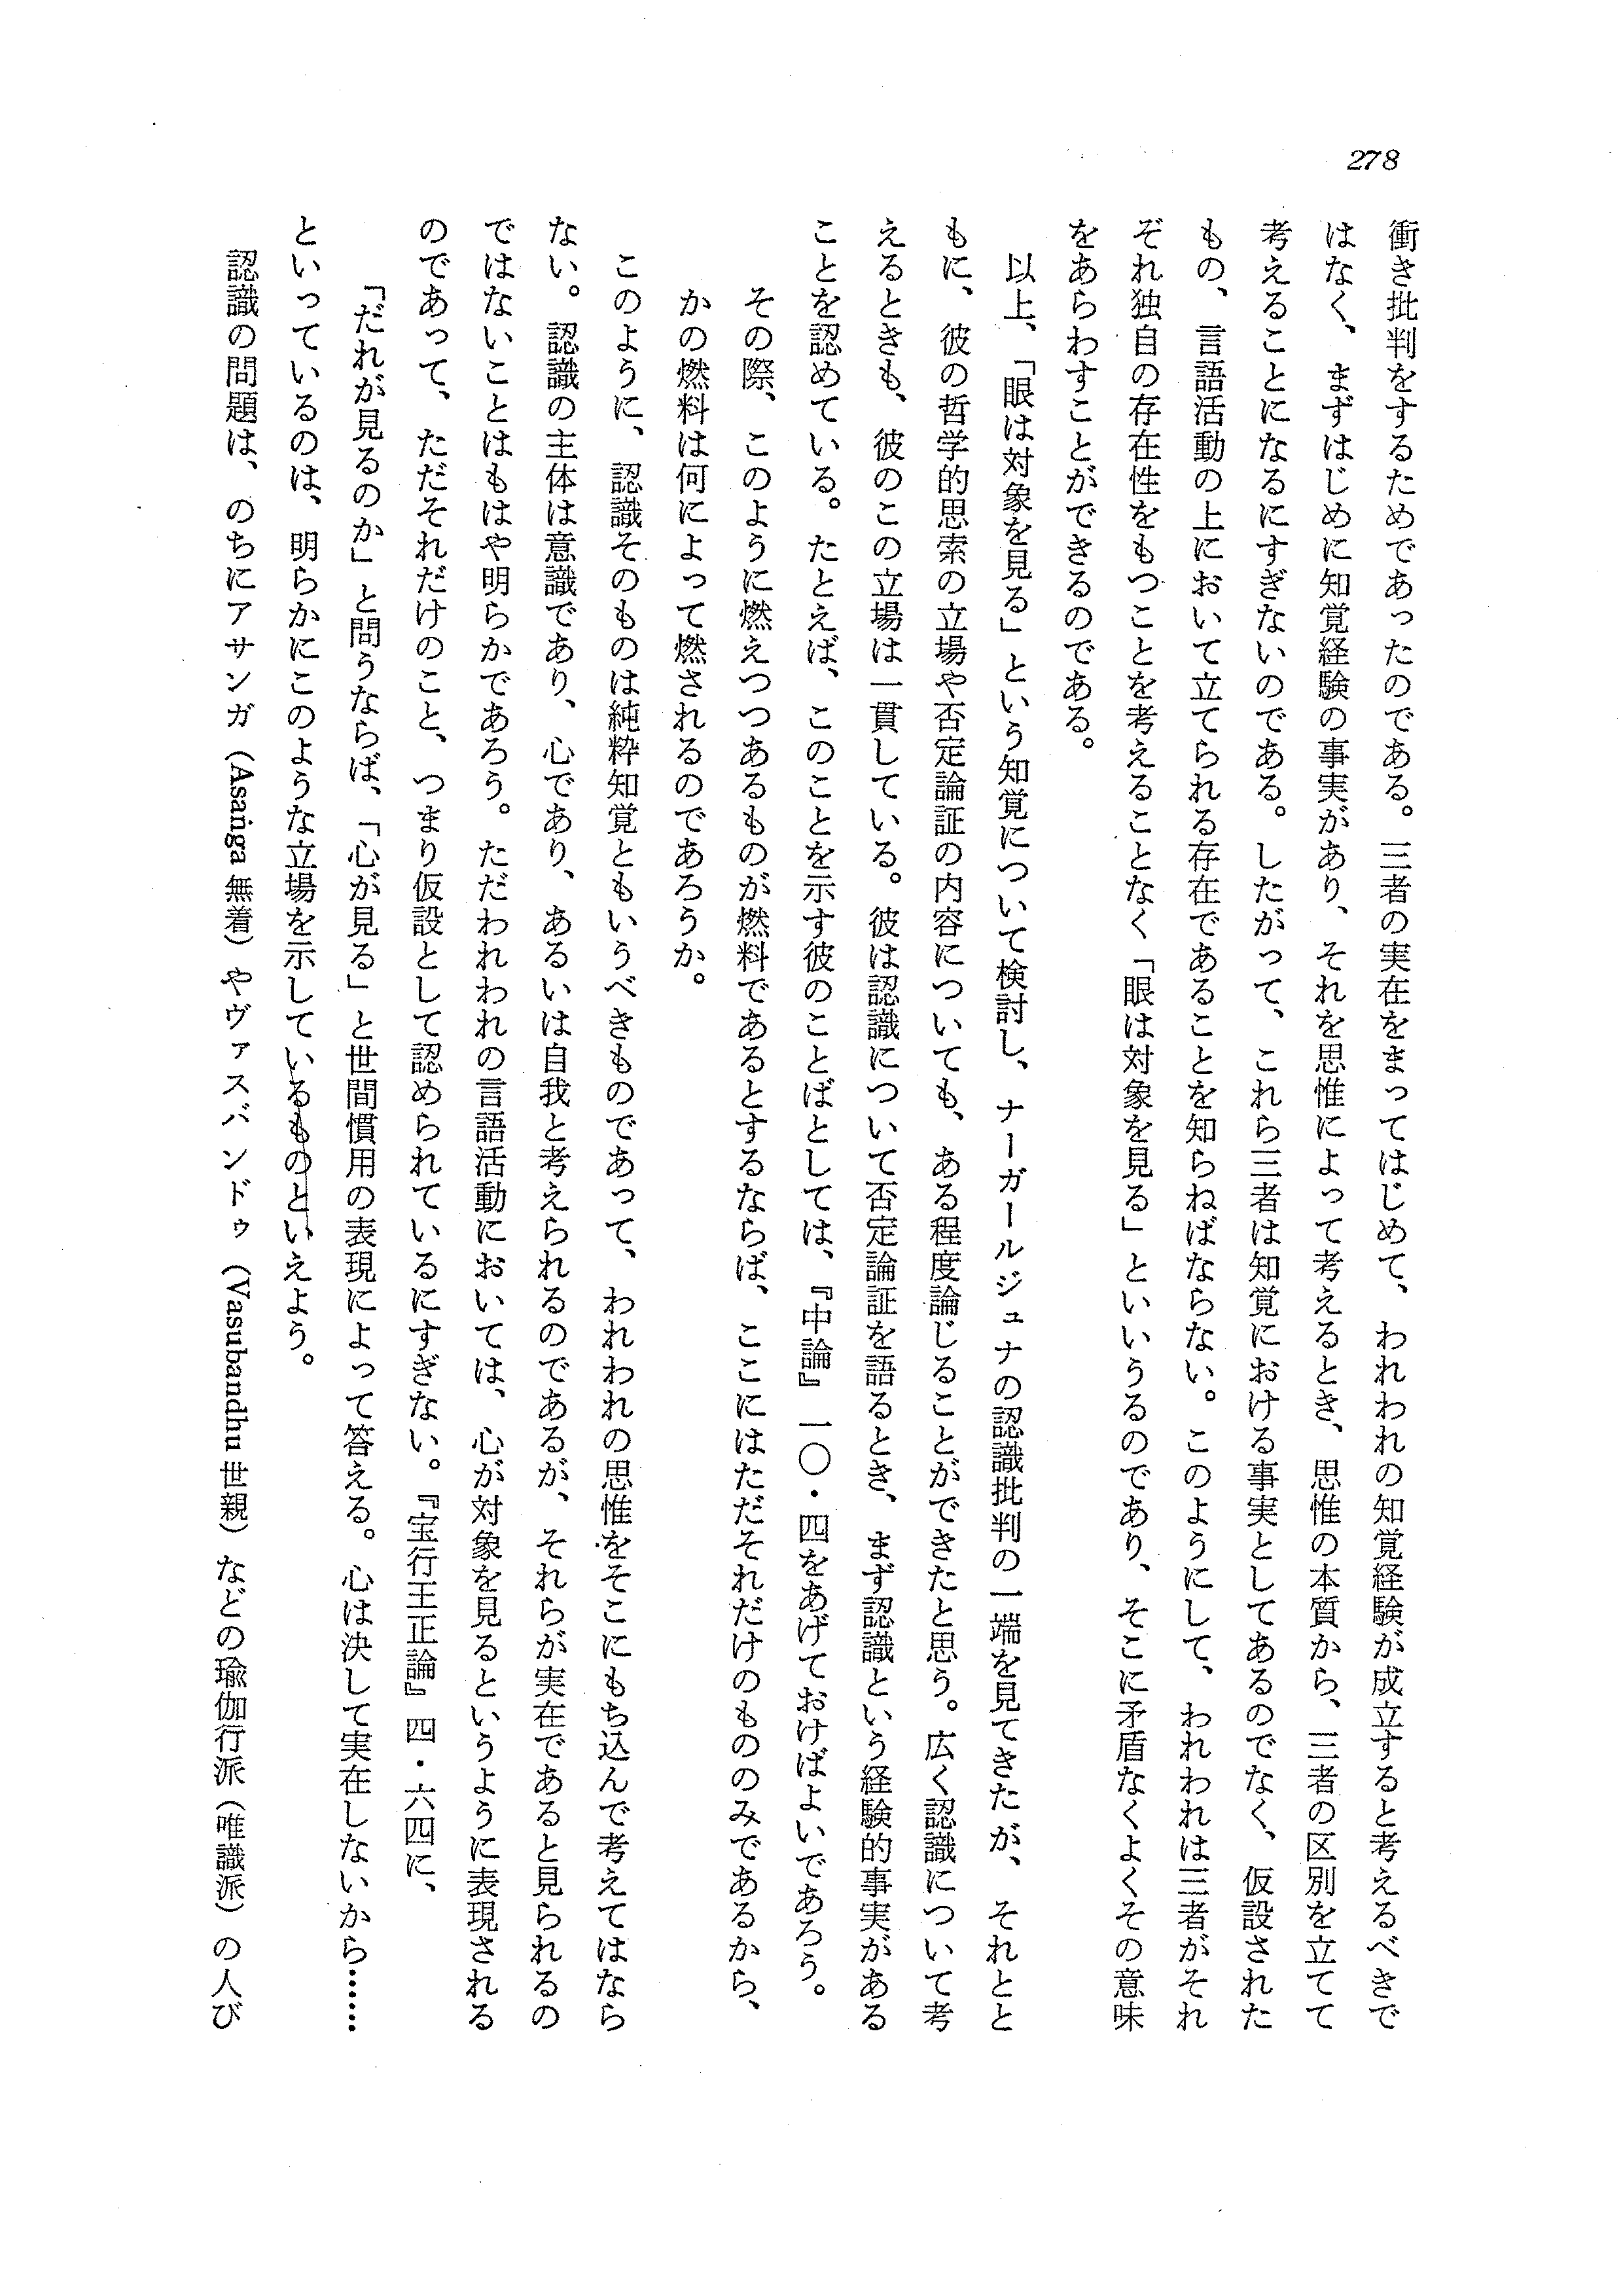 278
衝き批判をするためであったのである。三者の実在をまってはじめて、われわれの知覚経験が成立すると考えるべきで
はなく、まずはじめに知覚経験の事実があり、それを思惟によって考えるとき、思惟の本質から、三者の区別を立てて
考えることになるにすぎないのである。したがって、これら三者は知覚における事実としてあるのでなく、仮設された
もの、言語活動の上において立てられる存在であることを知らねばならない。このようにして、われわれは三者がそれ
ぞれ独自の存在性をもつことを考えることなく「眼は対象を見る」といいうるのであり、そこに矛盾なくよくその意味
をあらわすことができるのである。
以上、「眼は対象を見る」という知覚について検討し、ナーガールジュナの認識批判の一端を見てきたが、それとと
もに、彼の哲学的思索の立場や否定論証の内容についても、ある程度論じることができたと思う。広く認識について考
えるときも、彼のこの立場は一貫している。彼は認識について否定論証を語るとき、まず認識という経験的事実がある
ことを認めている。たとえば、このことを示す彼のことばとしては、『中論』一〇・四をあげておけばよいであろう。
その際、このように燃えつつあるものが燃料であるとするならば、ここにはただそれだけのもののみであるから、
かの燃料は何によって燃されるのであろうか。
このように、認識そのものは純粋知覚ともいうべきものであって、われわれの思惟をそこにもち込んで考えてはなら
ない。認識の主体は意識であり、心であり、あるいは自我と考えられるのであるが、それらが実在であると見られるの
ではないことはもはや明らかであろう。ただわれわれの言語活動においては、心が対象を見るというように表現される
のであって、ただそれだけのこと、つまり仮設として認められているにすぎない。『宝行王正論』四・六四に、
「だれが見るのか」と問うならば、「心が見る」と世間慣用の表現によって答える。心は決して実在しないから……
といっているのは、明らかにこのような立場を示しているものといえよう。
認識の問題は、のちにアサンガ（Asaṅga 無着）やヴァスバンドゥ（Vasubandhu 世親）などの瑜伽行派（唯識派）の人び